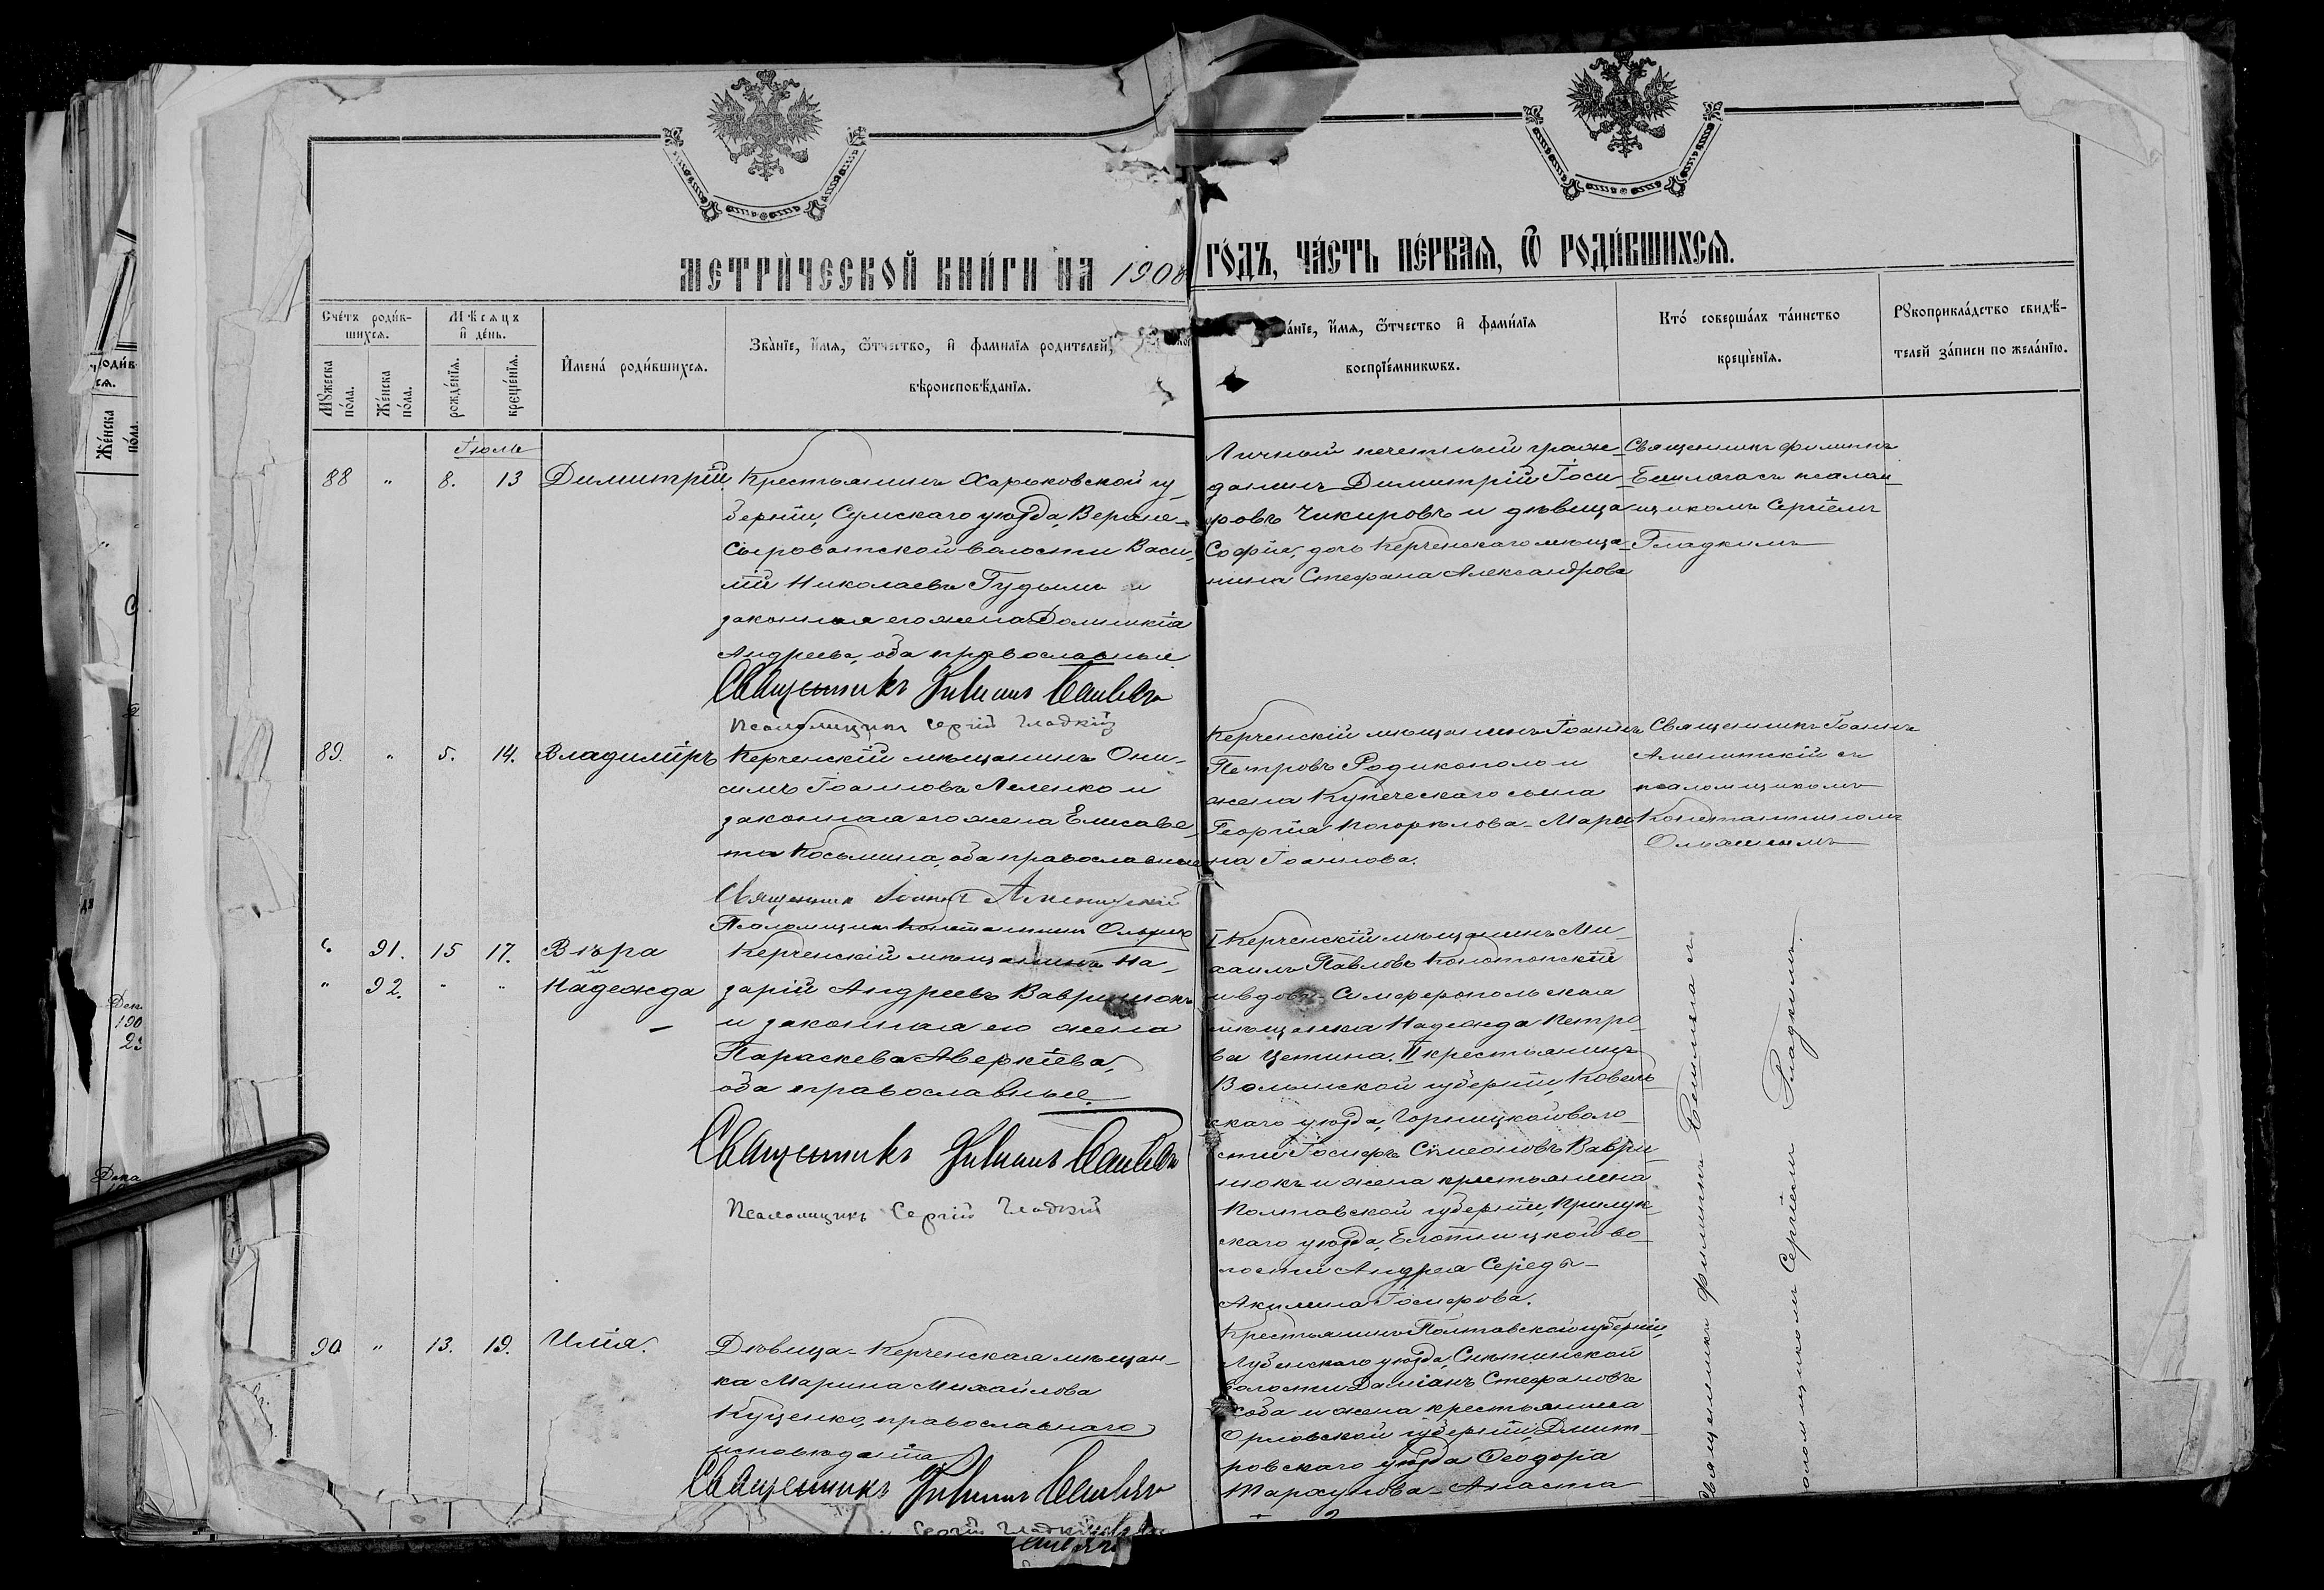 МЕТРИЧЕСКОЙ КНИГИ НА 1908 ГОДЪ, ЧАСТЬ ПЕРВАЯ, Ѿ РОДИВШИХСЯ.
Счетъ родив-
шихся.
Мѣсяцъ
и день.
Мужеска
пола.
Женска
пола.
рожденія.
крещенія.
Имена родившихся.
Званіе, имя, ѿтчество, и фамилія родителей,
вѣроисповѣданія.
имя, ѿтчество и фамилія
воспріемникѡвъ.
Кто совершалъ таинство
крещенія.
Рукоприкладство свидѣ-
телей записи по желанію.
Іюль
88 " 8. 13 Димитрій.
Крестьянинъ Харьковской гу-
берніи, Сумскаго уѣзда, Верхне-
Сыроватской волости Васи-
лій Николаевъ Гудымъ и
законная его жена Домникія
Андреева, оба православные.
Священникъ
Псаломщикъ Сергій Гладкій
Личный почетный граж-
данинъ Димитрій Іоси-
ровъ Чикировъ и дѣвица
Софія, дочь Керченскаго мѣща-
нина Стефана Александрова
Священникъ Филиппъ
съ псалом-
щикомъ Сергіемъ
Гладкимъ
89. " 5. 14. Владиміръ
Керченскій мѣщанинъ Они-
симъ Іоанновъ Леленко и
законная его жена Елисаве-
та Косьмина, оба православные
Священник Іоаннъ
Псаломщикъ Константинъ
Керченскій мѣщанинъ Іоаннъ
Петровъ Родиконоло и
жена Купеческаго сына
Георгія Погорѣлова - Мари-
на Іоаннова.
Священникъ Іоаннъ
съ
псаломщикомъ
Константиномъ
" 91. 15 17. Вѣра
" 92. " " Надежда
Керченскій мѣщанинъ На-
зарій Андреевъ Вавринюкъ
и законная его жена
Параскева Аверкіева,
оба православные.
Священникъ
Псаломщикъ Сергій Гладкій
I Керченскій мѣщанинъ Ми-
хаилъ Павловъ Конотопскій
и вдова - Симферопольская
мѣщанка Надежда Петро-
ва Цетина. II крестьянинъ
Волынской губерніи, Ковель-
скаго уѣзда, Горницкой воло-
сти Іосифъ Сѵмеоновъ Ваври-
нюкъ и жена крестьянина
Полтавской губерніи, Прилук-
скаго уѣзда, во-
лости Андрея Середы -
Акилина Іосифова.
Священникъ Филиппъ и
псаломщикомъ Сергіемъ Гладкимъ.
90 " 13. 19. Илія.
Дѣвица - Керченская мѣщан-
ка Марина Михайлова
Куценко, православнаго
исповѣданія
Священникъ
Сергій Гладкій
Крестьянинъ Полтавской губерніи,
Лубенскаго уѣзда, Снѣтинской
волости Даміанъ Стефановъ
и жена крестьянина
Орловской губерніи, Дмит-
ровскаго уѣзда Ѳеодора
- Анаста-